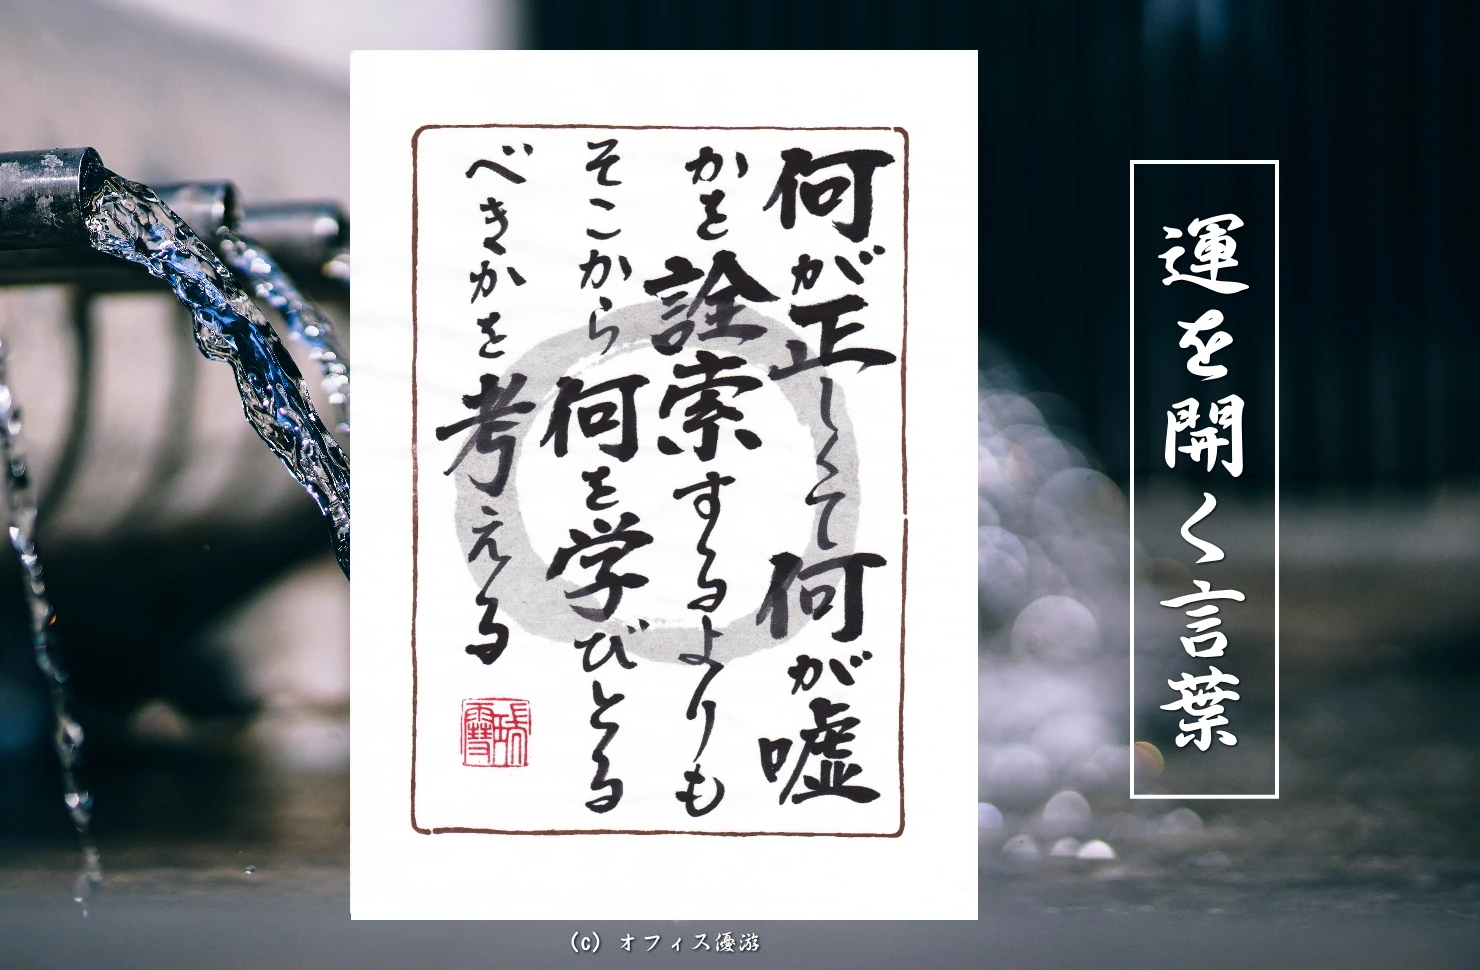 運を開く言葉
何が正しくて何が嘘
かを詮索するよりも
そこから何を学びとる
べきかを考える
(c) オフィス優游